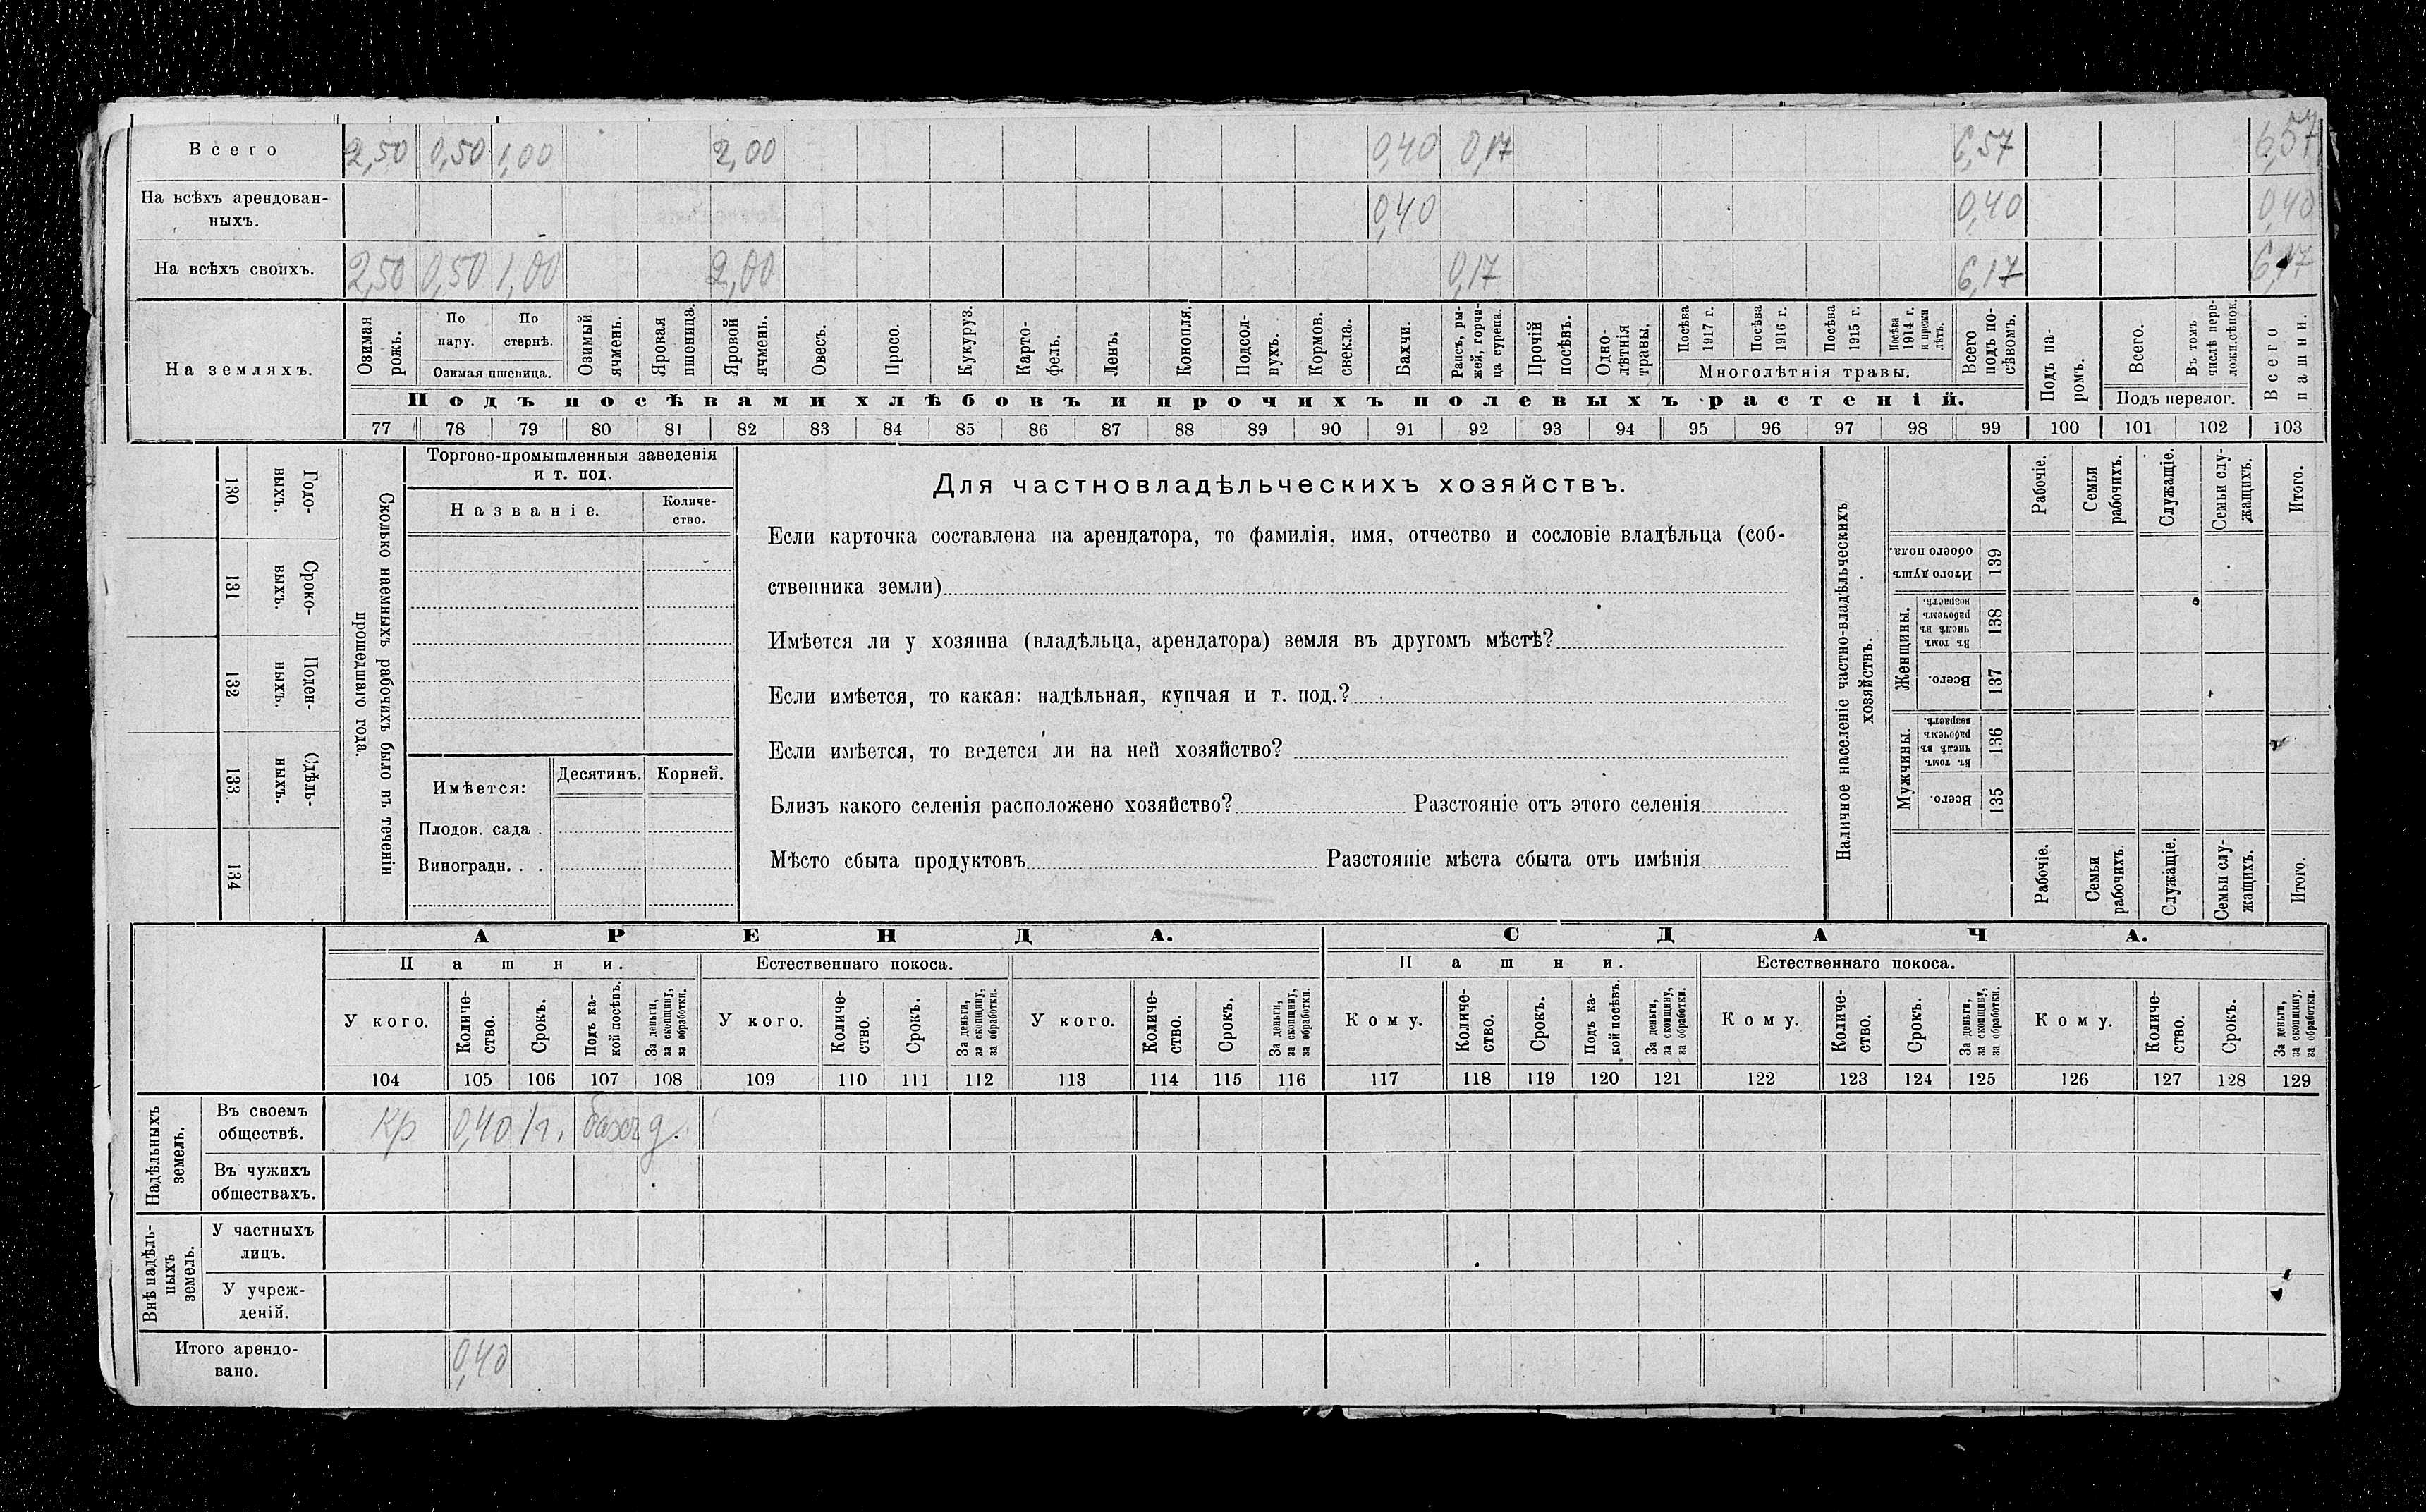 Всего 2,50 0,50 1,00 2,00 0,40 0,17 6,57 6,57
На всѣхъ арендован-
ныхъ. 0,40 0,40 0,40
На всѣхъ своихъ. 2,50 0,50 1,00 2,00 0,17 6,17 6,17
На земляхъ.
Озимая рожь.
По пару.
По стернѣ.
Озимая пшеница.
Озимый ячмень.
Яровая пшеница.
Яровой ячмень.
Овесъ.
Просо.
Кукуруз.
Карто-
фель.
Ленъ.
Конопля.
Подсол-
нухъ.
Кормов. свекла.
Бахчи.
Рапсъ, ры-
жей, горчи-
ца сурепа.
Прочій посѣвъ.
Одно-
лѣтнія травы.
Посѣва 1917 г.
Посѣва 1916 г.
Посѣва 1915 г.
Посѣва 1914 г. и прежн лѣтъ.
Многолѣтнія травы.
Всего подъ по-
сѣвомъ.
Подъ па-
ромъ.
Всего.
Въ томъ числѣ пере-
ложн.сѣнок.
Подъ перелог.
Всего пашни.
Подъ посѣвами хлѣбовъ и прочихъ полевыхъ растеній.
77 78 79 80 81 82 83 84 85 86 87 88 89 90 91 92 93 94 95 96 97 98 99 100 101 102 103
130 Годо-
выхъ.
131 Сроко-
выхъ.
132 Поден-
ныхъ.
133 Сдѣль-
ныхъ.
134
Сколько наемныхъ рабочихъ было въ теченіи
прошедшаго года.
Торгово-промышленныя заведенія
и т. под.
Названіе.
Количе-
ство.
Имѣется: Десятинъ. Корней.
Плодов. сада .
Виноградн. . .
Для частновладѣльческихъ хозяйствъ.
Если карточка составлена на арендатора, то фамилія, имя, отчество и сословіе владѣльца (соб-
ственника земли)
Имѣется ли у хозяина (владѣльца, арендатора) земля въ другомъ мѣстѣ?
Если имѣется, то какая: надѣльная, купчая и т. под.?
Если имѣется, то ведется ли на ней хозяйство?
Близъ какого селенія расположено хозяйство? Разстояніе отъ этого селенія
Мѣсто сбыта продуктовъ Разстояніе мѣста сбыта отъ имѣнія
Наличное населеніе частно-владѣльческихъ
хозяйствъ.
Рабочіе.
Семьи рабочихъ.
Служащіе.
Семьи слу-
жащихъ.
Итого.
Итого душъ обоего пола. 139
Женщины.
Въ томъ числѣ въ рабочемъ возрастѣ. 138
Всего. 137
Мужчины.
Въ томъ числѣ въ рабочемъ возрастѣ. 136
Всего. 135
Рабочіе.
Семьи рабочихъ
Служащіе.
Семьи слу-
жащихъ.
Итого.
АРЕНДА. СДАЧА.
Пашни. Естественнаго покоса. Пашни. Естественнаго покоса.
У кого.
Количе-
ство.
Срокъ.
Подъ ка-
кой посѣвъ.
За деньги,
за скопщину,
за обработки.
У кого.
Количе-
ство.
Срокъ.
За деньги,
за скопщину,
за обработки.
У кого.
Количе-
ство.
Срокъ.
За деньги,
за скопщину,
за обработки.
Кому.
Количе-
ство.
Срокъ.
Подъ ка-
кой посѣвъ.
За деньги,
за скопщину,
за обработки.
Кому.
Количе-
ство.
Срокъ.
За деньги,
за скопщину,
за обработки.
Кому.
Количе-
ство.
Срокъ.
За деньги,
за скопщину,
за обработки.
104 105 106 107 108 109 110 111 112 113 114 115 116 117 118 119 120 121 122 123 124 125 126 127 128 129
Надѣльныхъ земель.
Въ своемъ
обществѣ. Кр 0,40 1г. бахч д.
Въ чужихъ
обществахъ.
Внѣ надѣль-
ныхъ земель.
У частныхъ
лицъ.
У учреж-
деній.
Итого арендо-
вано. 0,40